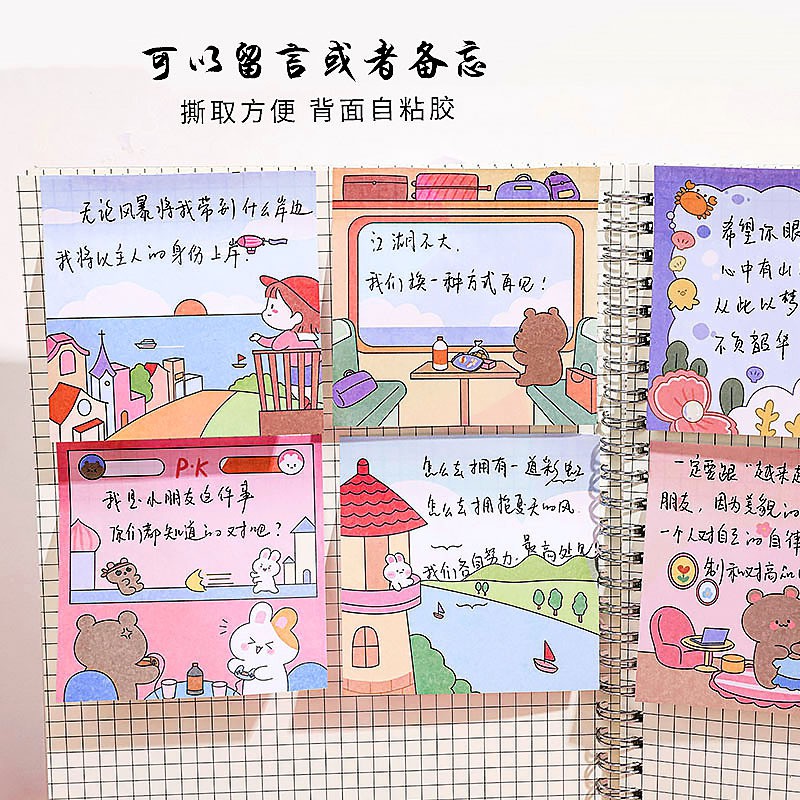 可以留言或者备忘
撕取方便 背面自粘胶
无论风暴将我带到什么岸边
我将以主人的身份上岸.
江湖不大,
我们换一种方式再见!
希望你眼
心中有山
从此以梦
不负韶华
P·K
我是小朋友这件事
你们都知道的对吧?
怎么去拥有一道彩虹
怎么去拥抱夏天的风.
我们各自努力.最高处见
一定要跟"越来越
朋友, 因为美貌的
一个人对自己的自律
制和对高